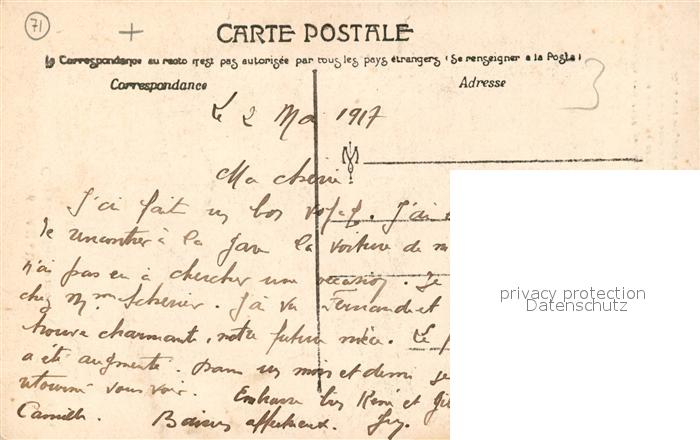 71
CARTE POSTALE
La Correspondance au recto n'est pas autorisée par tous les pays étrangers (Se renseigner à la Poste)
Correspondance
Adresse
3
Le 2 Mai 1917
Ma chérie
J'ai fait un bon voyage. J'ai
rencontrer à la gare la voiture de
n'ai pas eu à chercher une occasion. Je
chez Mme J'ai vu Fernand et
trouve charmante, notre future nièce. Le
a été augmenté. Dans un mois et demi
vous voir. Embrasse bien René et
Camille. Baisers affectueux.
privacy protection
Datenschutz